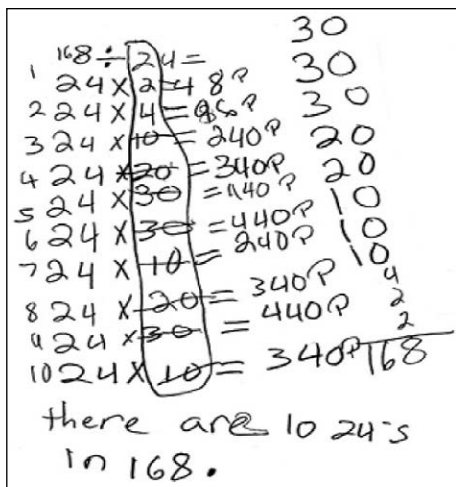 168 ÷ 24 =
1 24 x 2 = 48P
2 24 x 4 = 96P
3 24 x 10 = 240P
4 24 x 20 = 340P
5 24 x 30 = 440P
6 24 x 30 = 440P
7 24 x 10 = 240P
8 24 x 20 = 340P
9 24 x 30 = 440P
10 24 x 10 = 340P
30
30
30
20
20
10
10
10
4
2
2
168
there are 10 24-s
in 168.